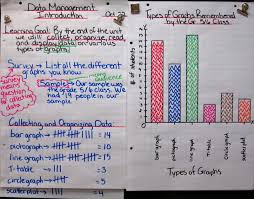 Data Management
Introduction Oct 22
Learning Goal: By the end of the unit
we will collect, organize, read
and display data on various
types of graphs.
Survey → List all the different
graphs you know.
Survey
means
question
for
collecting
data
Sample: Our sample was
the grade 5/6 class. We
had 19 people in our
sample.
audience
Collecting and Organizing Data:
bar graph = 14
pictograph = 10
line graph = 15
T-table = 3
circle graph = 5
scatterplot = 4
Types of Graphs Remembered
by the Gr. 5/6 Class
# of students
bar graph
pictograph
line graph
T-table
circle graph
scatterplot
Types of Graphs